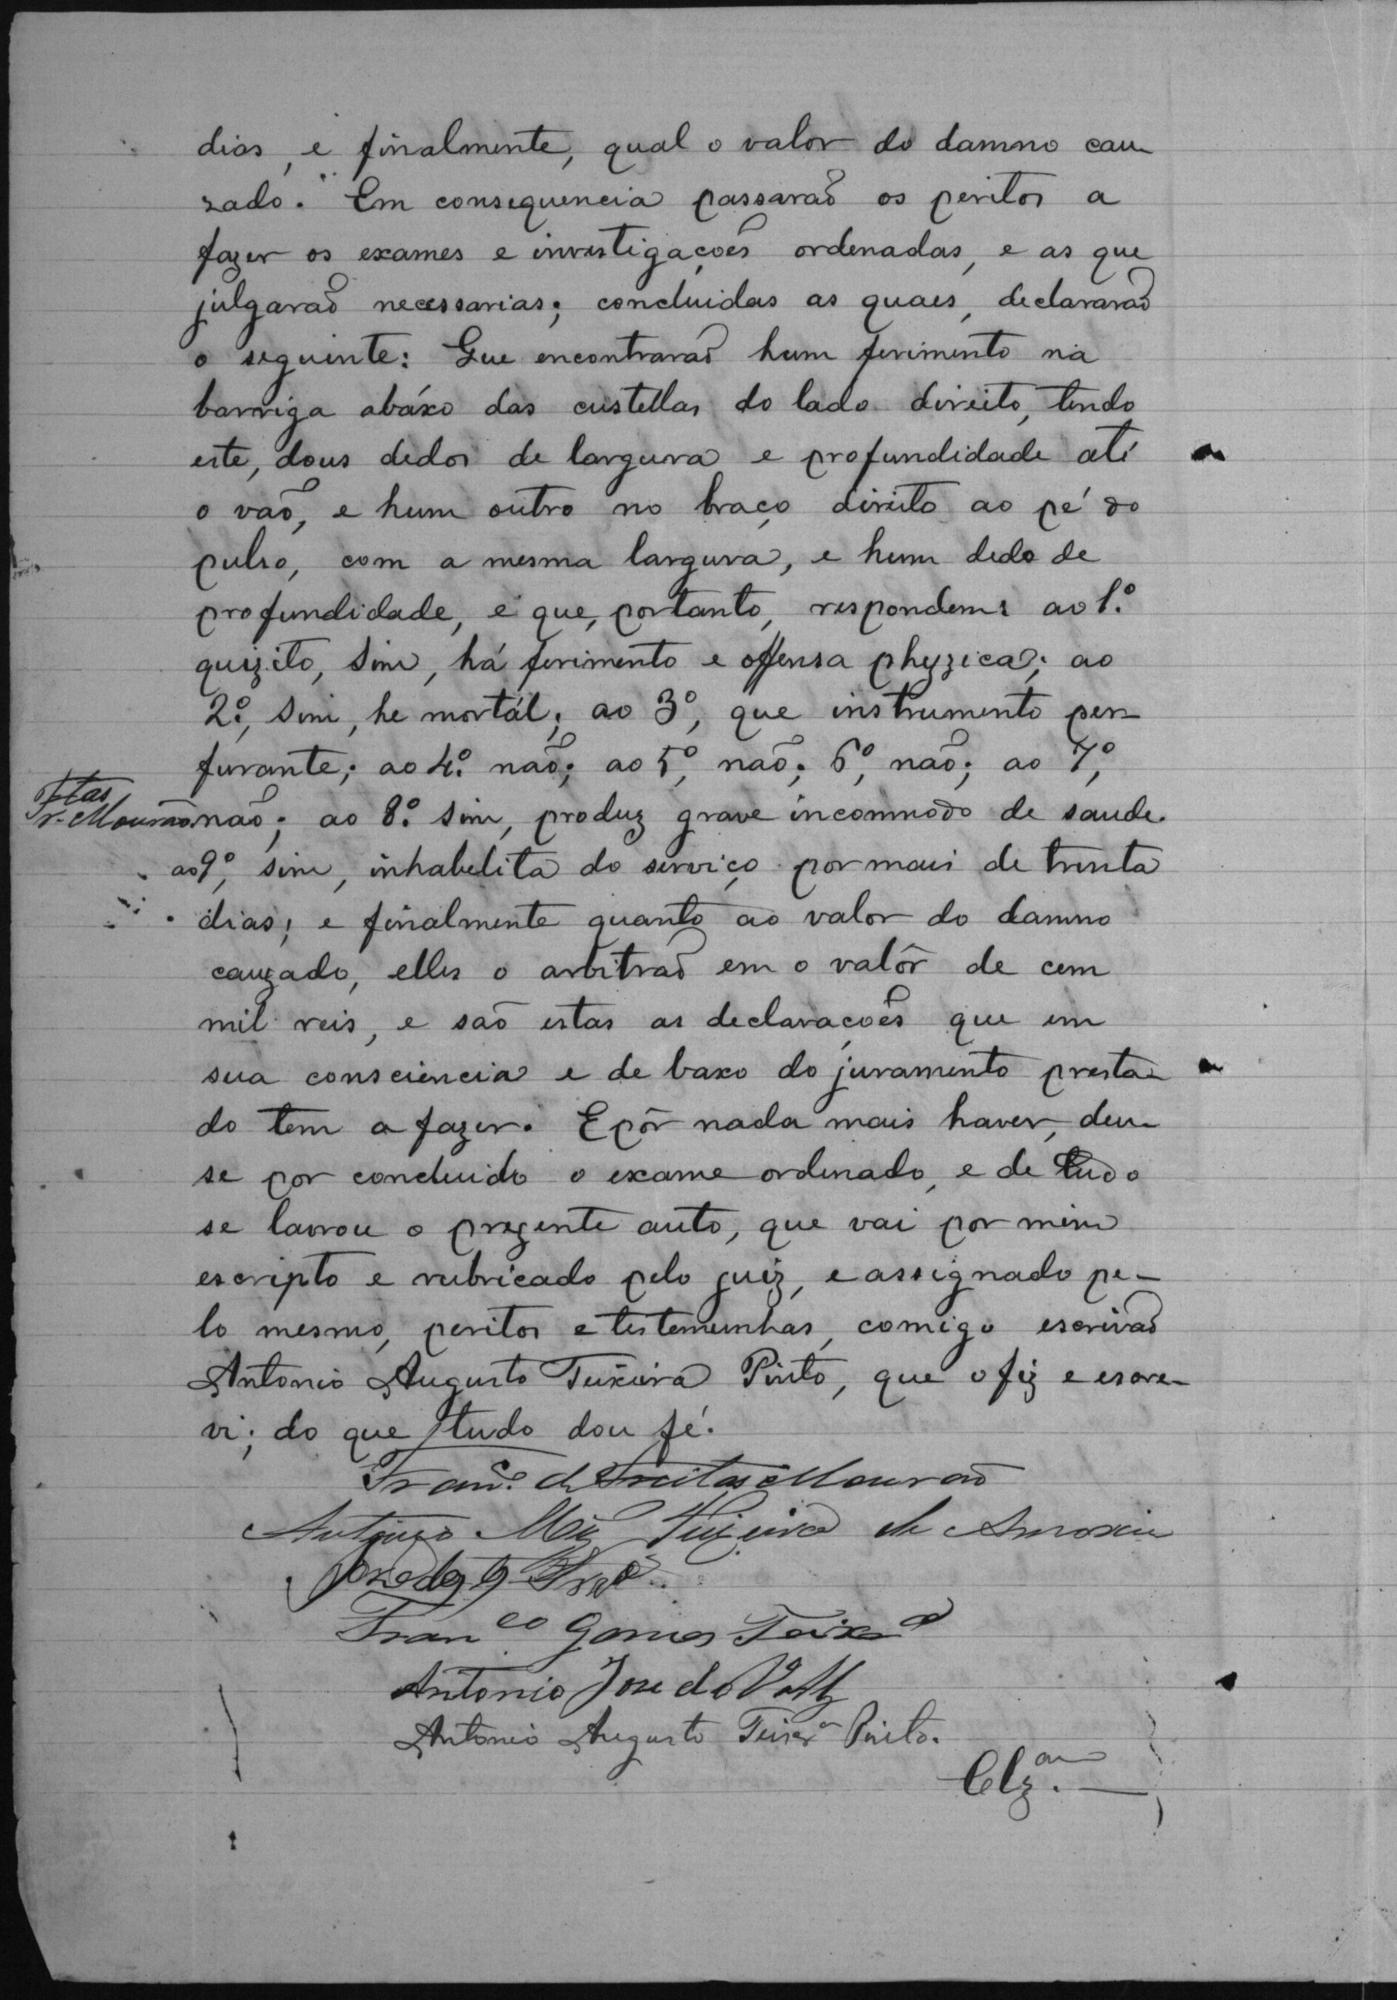 dias, e finalmente, qual o valor do damno cau-
zado. Em consequencia passarão os peritos a
fazer os exames e investigações ordenadas, e as que
julgarão necessarias; concluidas as quaes, declararão
o seguinte: Que encontrarão hum ferimento na
barriga abáxo das custellas do lado direito, tendo
este, dous dedos de largura e profundidade até
o vaõ, e hum outro no braço direito ao pé do
pulso, com a mesma largura, e hum dedo de
profundidade, e que, portanto, respondem: ao 1.º
quizito, sim, há ferimento e offensa phyzica; ao
2.º, sim, he mortál; ao 3º, que instrumento per-
furante; ao 4.º não; ao 5º, não; 6º, não; ao 7º,
Ftas
Mourão não; ao 8.º sim, produz grave incommodo de saude.
ao 9º, sim, inhabelita do serviço por mais de trinta
dias; e finalmente quanto ao valor do damno
cauzado, elles o arbitrão em o valôr de cem
mil reis, e saõ estas as declarações que em
sua consciencia e de baxo do juramento presta-
do tem a fazer. E pôr nada mais haver, deu-
se por concluido o exame ordenado, e de tudo
se lavrou o prezente auto, que vai por mim
escripto e rubricado pelo juiz, e assignado pe-
lo mesmo, peritos e testemunhas, comigo escrivaõ
Antonio Augusto Teixeira Pinto, que o fiz e escre-
vi; do que tudo dou fé.
Franco. de Freitas Mourão
Teixeira de
Franco Gomes Teixra
Antonio Jose do
Antonio Augusto Teixra Pinto.
Clzam.